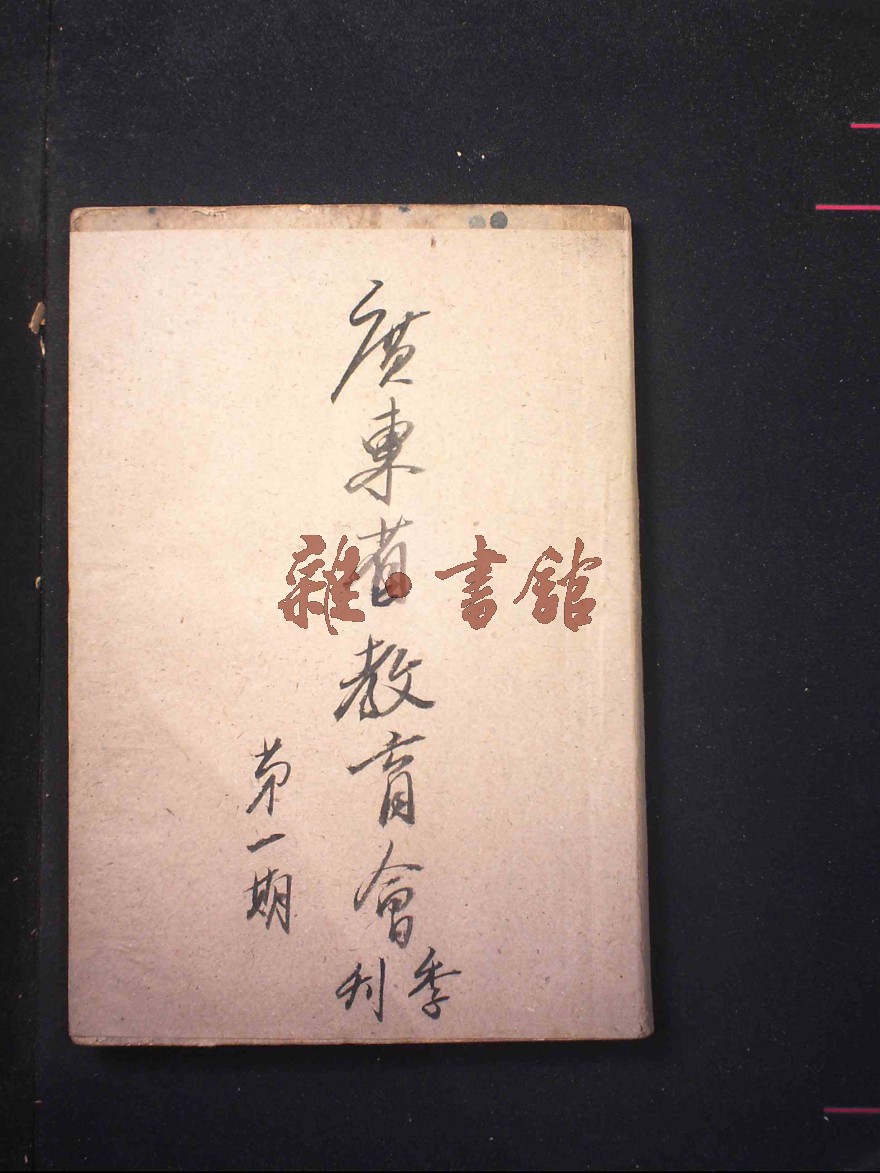 廣東省教育會
季刊
第一期
雜·書館